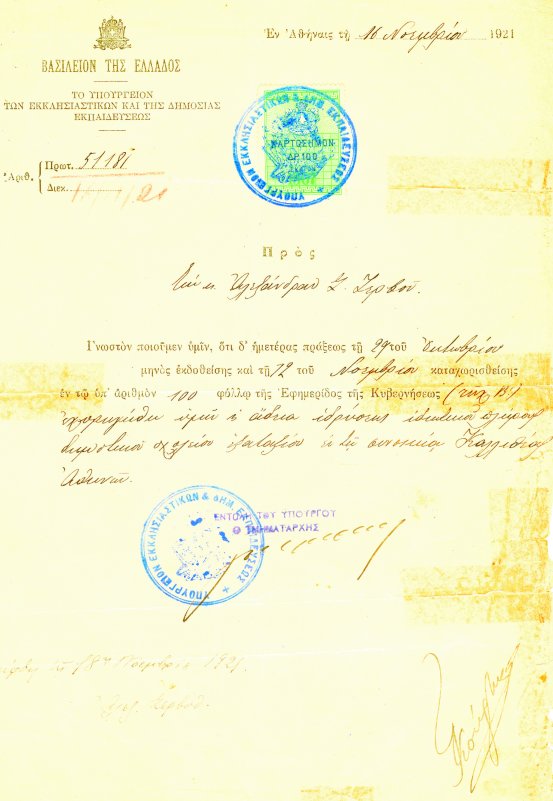 Ἐν Ἀθήναις τῇ 16 Νοεμβρίου 1921
ΒΑΣΙΛΕΙΟΝ ΤΗΣ ΕΛΛΑΔΟΣ
ΤΟ ΥΠΟΥΡΓΕΙΟΝ
ΤΩΝ ΕΚΚΛΗΣΙΑΣΤΙΚΩΝ ΚΑΙ ΤΗΣ ΔΗΜΟΣΙΑΣ
ΕΚΠΑΙΔΕΥΣΕΩΣ
ΥΠΟΥΡΓΕΙΟΝ ΕΚΚΛΗΣΙΑΣΤΙΚΩΝ & ΔΗΜ. ΕΚΠΑΙΔΕΥΣΕΩΣ
ΧΑΡΤΟΣΗΜΟΝ
ΔΡ. 100
Ἀριθ. Πρωτ. 51181
Διεκ.
Πρὸς
Τὴν κ. Ἀλεξάνδραν Σ. Ζερβοῦ.
Γνωστὸν ποιοῦμεν ὑμῖν, ὅτι δι' ἡμετέρας πράξεως τῇ 29 τοῦ Ὀκτωβρίου
μηνὸς ἐκδοθείσης καὶ τῇ 12 τοῦ Νοεμβρίου καταχωρισθείσης
ἐν τῷ ὑπ' ἀριθμὸν 100 φύλλῳ τῆς Ἐφημερίδος τῆς Κυβερνήσεως (τεῦχ. Β.)
ἐχορηγήθη ὑμῖν ἡ ἄδεια ἱδρύσεως ἰδιωτικοῦ πλήρους
δημοτικοῦ σχολείου ἑξαταξίου ἐν τῇ συνοικίᾳ
Ἀθηνῶν.
ΥΠΟΥΡΓΕΙΟΝ ΕΚΚΛΗΣΙΑΣΤΙΚΩΝ & ΔΗΜ. ΕΚΠΑΙΔΕΥΣΕΩΣ
ΕΝΤΟΛῌ ΤΟΥ ΥΠΟΥΡΓΟΥ
Ο ΤΜΗΜΑΤΑΡΧΗΣ
18 Νοεμβρίου 1921